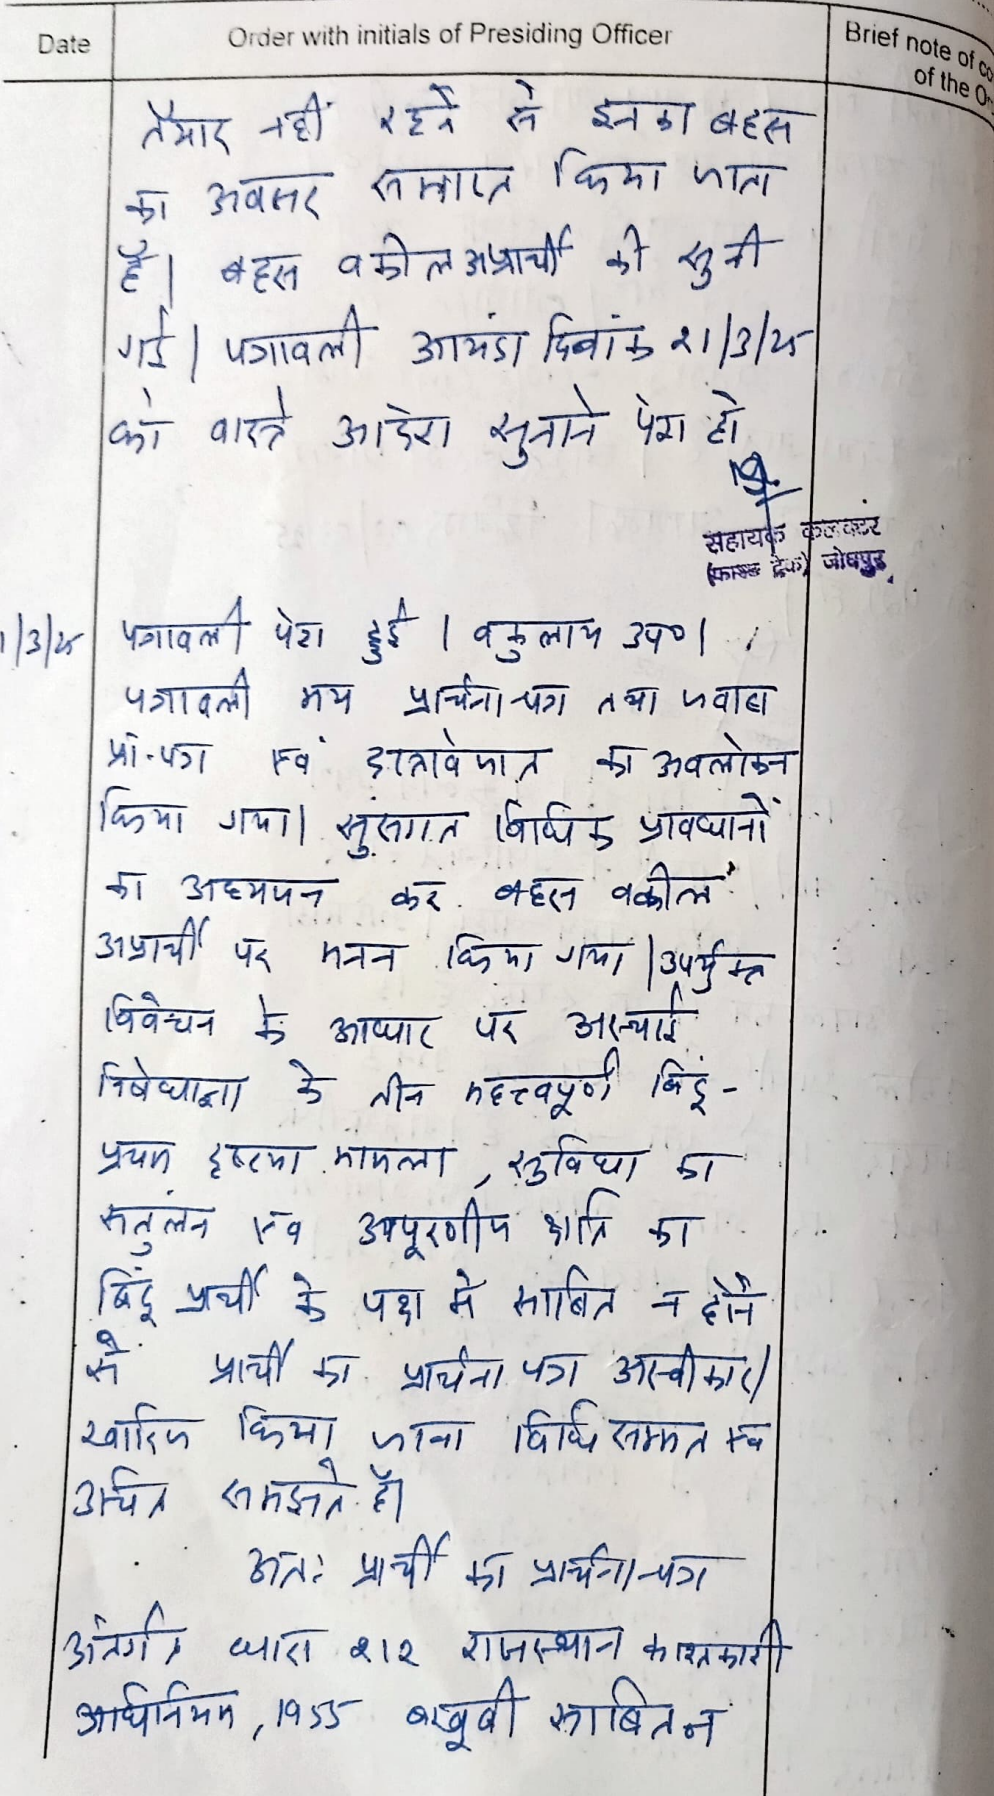 Date
Order with initials of Presiding Officer
Brief note of co
of the O
तैयार नहीं रहने से इनका बहस
का अवसर समाप्त किया जाता
है। बहस वकील अप्रार्थी की सुनी
गई। पत्रावली आयंदा दिनांक 21/3/25
को वास्ते आदेश सुनाने पेश हो
सहायक कलक्टर
(फास्ट ट्रेक) जोधपुर
1/3/25 पत्रावली पेश हुई। वकुलाय उप०।
पत्रावली मय प्रार्थना-पत्र तथा जवाब
प्रा.-पत्र एवं दस्तावेजात का अवलोकन
किया गया। सुसंगत विधिक प्रावधानों
का अध्ययन कर बहस वकील
अप्रार्थी पर मनन किया गया। उपर्युक्त
विवेचन के आधार पर अस्थाई
निषेधाज्ञा के तीन महत्त्वपूर्ण बिंदु -
प्रथम दृष्टया मामला, सुविधा का
संतुलन एवं अपूरणीय क्षति का
बिंदु प्रार्थी के पक्ष में साबित न होने
से प्रार्थी का प्रार्थना पत्र अस्वीकार/
खारिज किया जाना विधि सम्मत एवं
उचित समझते हैं।
अतः प्रार्थी का प्रार्थना-पत्र
अंतर्गत धारा 212 राजस्थान काश्तकारी
अधिनियम, 1955 बखूबी साबित न